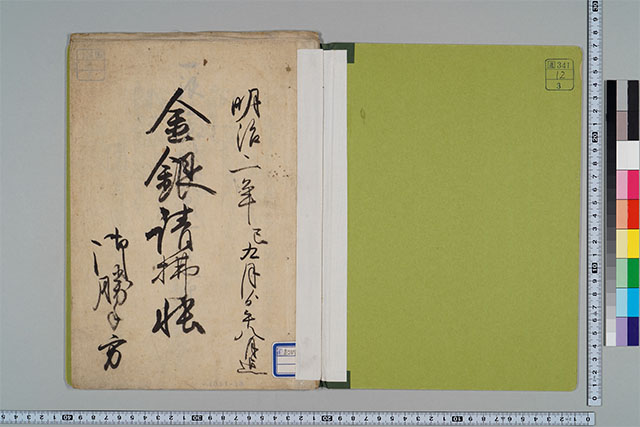 明治二年己九月ゟ午八月迄
金銀請拂帳
御勝手方
341
12
3